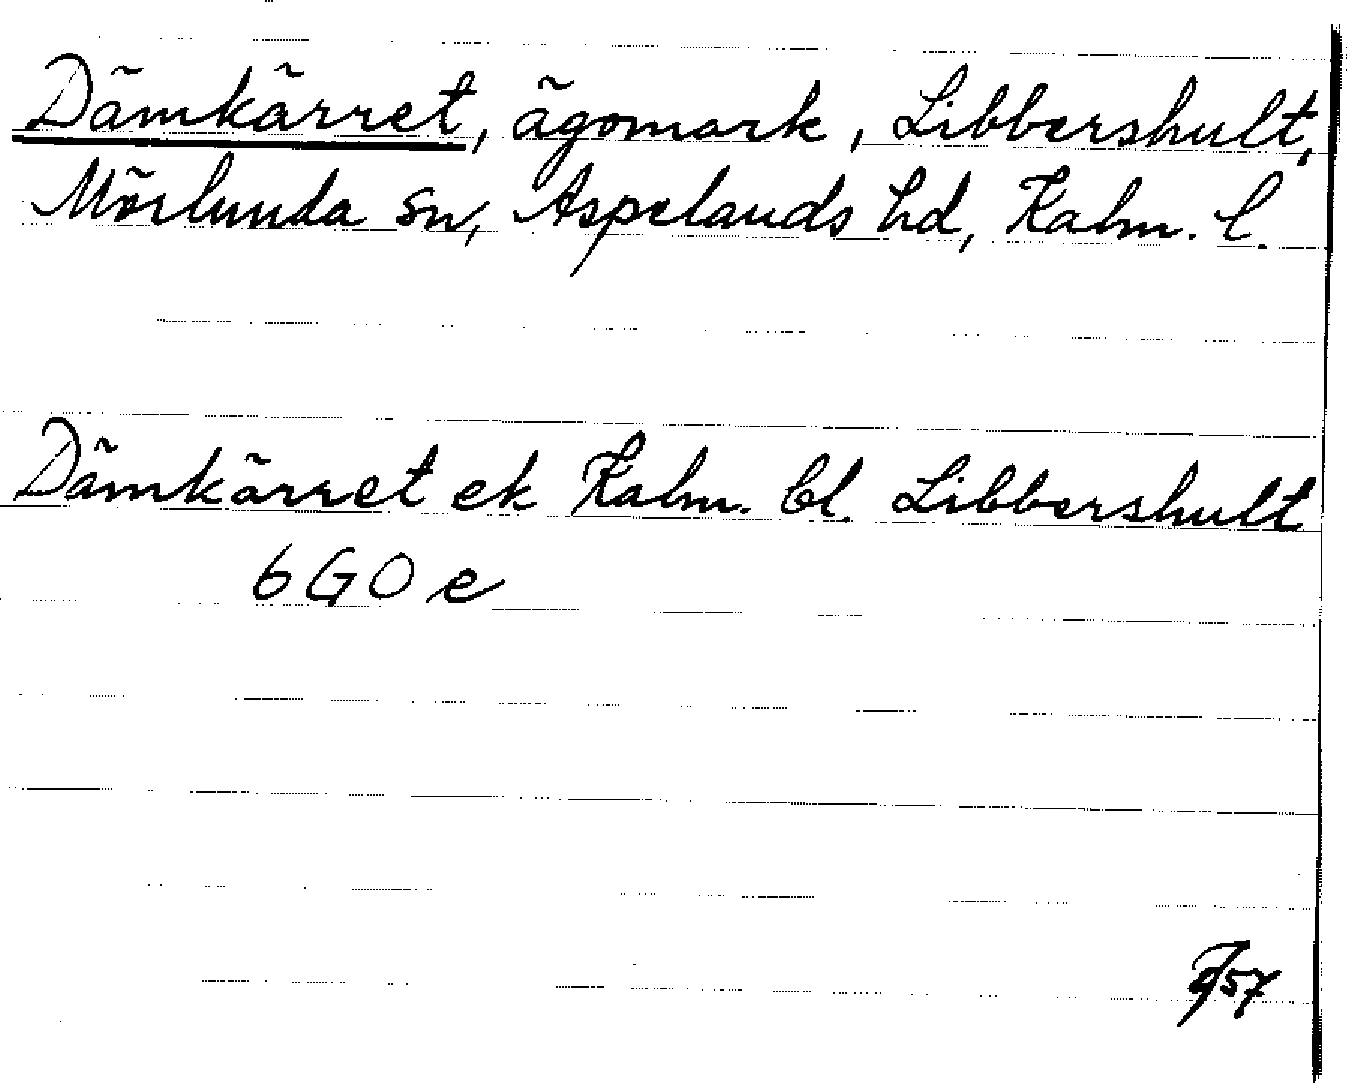 Dämkärret, ägomark, Libbershult,
Mörlunda sn, Aspelands hd, Kalm. l.
Dämkärret ek Kalm. bl. Libbershult
6G0e